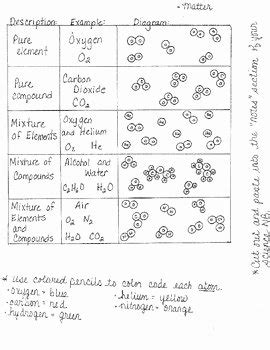 - Matter
Description: Example: Diagram:
Pure
element
Oxygen
O₂
Pure
compound
Carbon
Dioxide
CO₂
Mixture
of Elements
Oxygen
and Helium
O₂ He
Mixture of
Compounds
Alcohol and
Water
C₂H₆O H₂O
Mixture of
Elements
and
Compounds
Air
O₂ N₂
H₂O CO₂
* Use colored pencils to color code each atom.
- oxygen = blue
- carbon = red
- hydrogen = green
- helium = yellow
- nitrogen = orange
* Cut out and paste into the "notes" section of your
science NB.